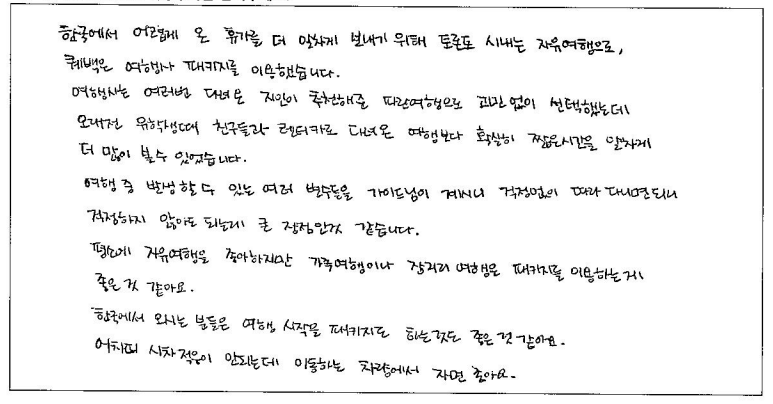 한국에서 어렵게 온 휴가를 더 알차게 보내기 위해 토론토 시내는 자유여행으로,
퀘백은 여행사 패키지를 이용했습니다.
여행사는 여러번 다녀온 지인이 추천해준 파란여행으로 고민없이 선택했는데
오래전 유학생때 친구들과 렌터카로 다녀온 여행보다 확실히 짧은시간을 알차게
더 많이 볼수 있었습니다.
여행 중 발생할 수 있는 여러 변수들을 가이드님이 계시니 걱정없이 따라 다니면 되니
걱정하지 않아도 되는게 큰 장점인것 같습니다.
평소에 자유여행을 좋아하지만 가족여행이나 장거리 여행은 패키지를 이용하는게
좋은 것 같아요.
한국에서 오시는 분들은 여행 시작을 패키지로 하는것도 좋은 것 같아요.
어차피 시차적응이 안되는데 이동하는 차량에서 자면 좋아요.